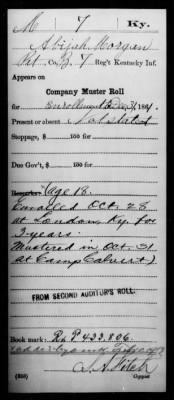 M 7 Ky.
Abijah Morgan
Pvt, Co. J, 7 Reg't Kentucky Inf.
Appears on
Company Muster Roll
for Enrollment to Dec 31, 1861.
Present or absent Not stated
Stoppage, $ 100 for
Due Gov't, $ 100 for
Remarks: Age 18.
Enrolled Oct. 28
at London, Ky. for
3 years.
Mustered in Oct. 31
at Camp Calvert
FROM SECOND AUDITOR'S ROLL.
Book mark: R & P 433.806
(858) Copyist